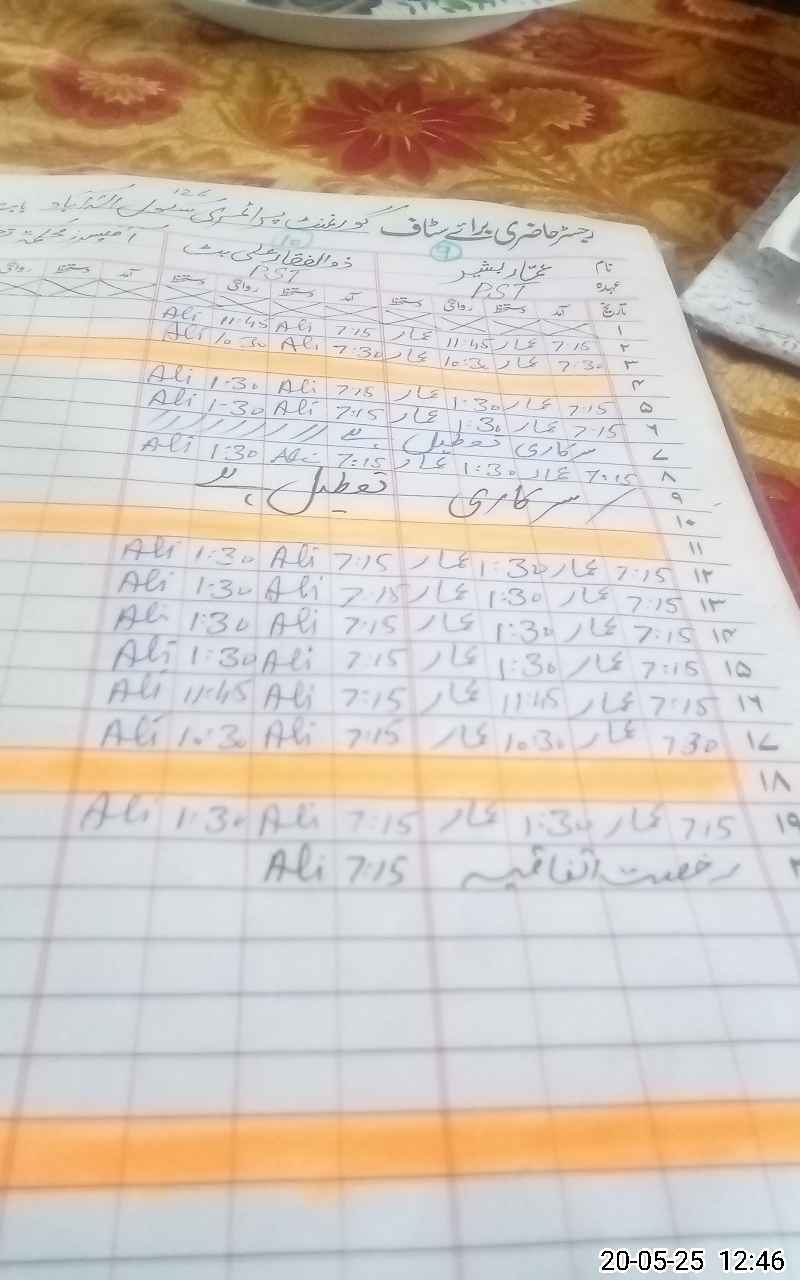 رجسٹر حاضری برائے سٹاف گورنمنٹ پرائمری سکول
نام عمار بشیر ۹ ذوالفقار علی بٹ 10
عہدہ PST PST
تاریخ آمد دستخط روانگی دستخط آمد دستخط روانگی دستخط آمد دستخط روانگی
۱
۲ 7:15 عمار 11:45 عمار 7:15 Ali 11:45 Ali
۳ 7:30 عمار 10:30 عمار 7:30 Ali 10:30 Ali
۴
۵ 7:15 عمار 1:30 عمار 7:15 Ali 1:30 Ali
۶ 7:15 عمار 1:30 عمار 7:15 Ali 1:30 Ali
۷ سرکاری تعطیل ہے
۸ 7:15 عمار 1:30 عمار 7:15 Ali 1:30 Ali
۹ سرکاری تعطیل ہے
۱۰
۱۱
۱۲ 7:15 عمار 1:30 عمار 7:15 Ali 1:30 Ali
۱۳ 7:15 عمار 1:30 عمار 7:15 Ali 1:30 Ali
۱۴ 7:15 عمار 1:30 عمار 7:15 Ali 1:30 Ali
۱۵ 7:15 عمار 1:30 عمار 7:15 Ali 1:30 Ali
۱۶ 7:15 عمار 11:45 عمار 7:15 Ali 11:45 Ali
۱۷ 730 عمار 10:30 عمار 7:15 Ali 10:30 Ali
۱۸
۱۹ 715 عمار 1:30 عمار 7:15 Ali 1:30 Ali
رخصت اتفاقیہ 7:15 Ali
20-05-25 12:46